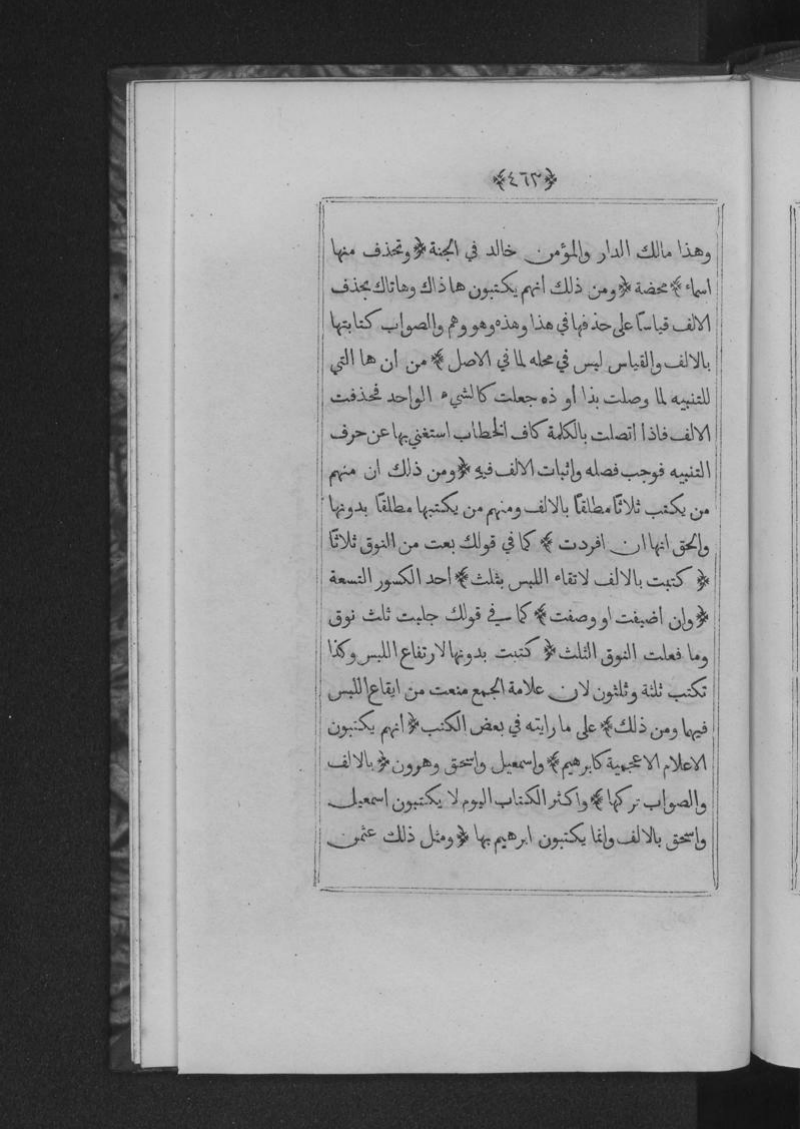 ﴿٤٦٣﴾
وهذا مالك الدار والمؤمن خالد في الجنة ﴿ وتحذف منها
اسماء ﴾ محضة ﴿ ومن ذلك انهم يكتبون هاذاك وهاتاك بحذف
الالف قياسا على حذفها في هذا وهذه وهو وهم والصواب كتابتها
بالالف والقياس ليس في محله لما في الاصل ﴾ من ان ها التي
للتنبيه لما وصلت بذا أو ذه جعلت كالشيء الواحد فحذفت
الالف فاذا اتصلت بالكلمة كاف الخطاب استغني بها عن حرف
التنبيه فوجب فصله واثبات الالف فيه ﴿ ومن ذلك ان منهم
من يكتب ثلاثا مطلقا بالالف ومنهم من يكتبها مطلقا بدونها
والحق انها ان افردت ﴾ كما في قولك بعت من النوق ثلاثا
﴿ كتبت بالالف لاتقاء اللبس بثلث ﴾ احد الكسور التسعة
﴿ وان اضيفت او وصفت ﴾ كما في قولك جلبت ثلث نوق
وما فعلت النوق الثلث ﴿ كتبت بدونها لارتفاع اللبس وكذا
تكتب ثلثة وثلثون لان علامة الجمع منعت من ايقاع اللبس
فيهما ومن ذلك ﴾ على ما رايته في بعض الكتب ﴿ انهم يكتبون
الاعلام الاعجمية كابرهيم ﴾ واسمعيل واسحق وهرون ﴿ بالالف
والصواب تركها ﴾ واكثر الكتاب اليوم لا يكتبون اسمعيل
واسحق بالالف وانما يكتبون ابرهيم بها ﴿ ومثل ذلك عثمن